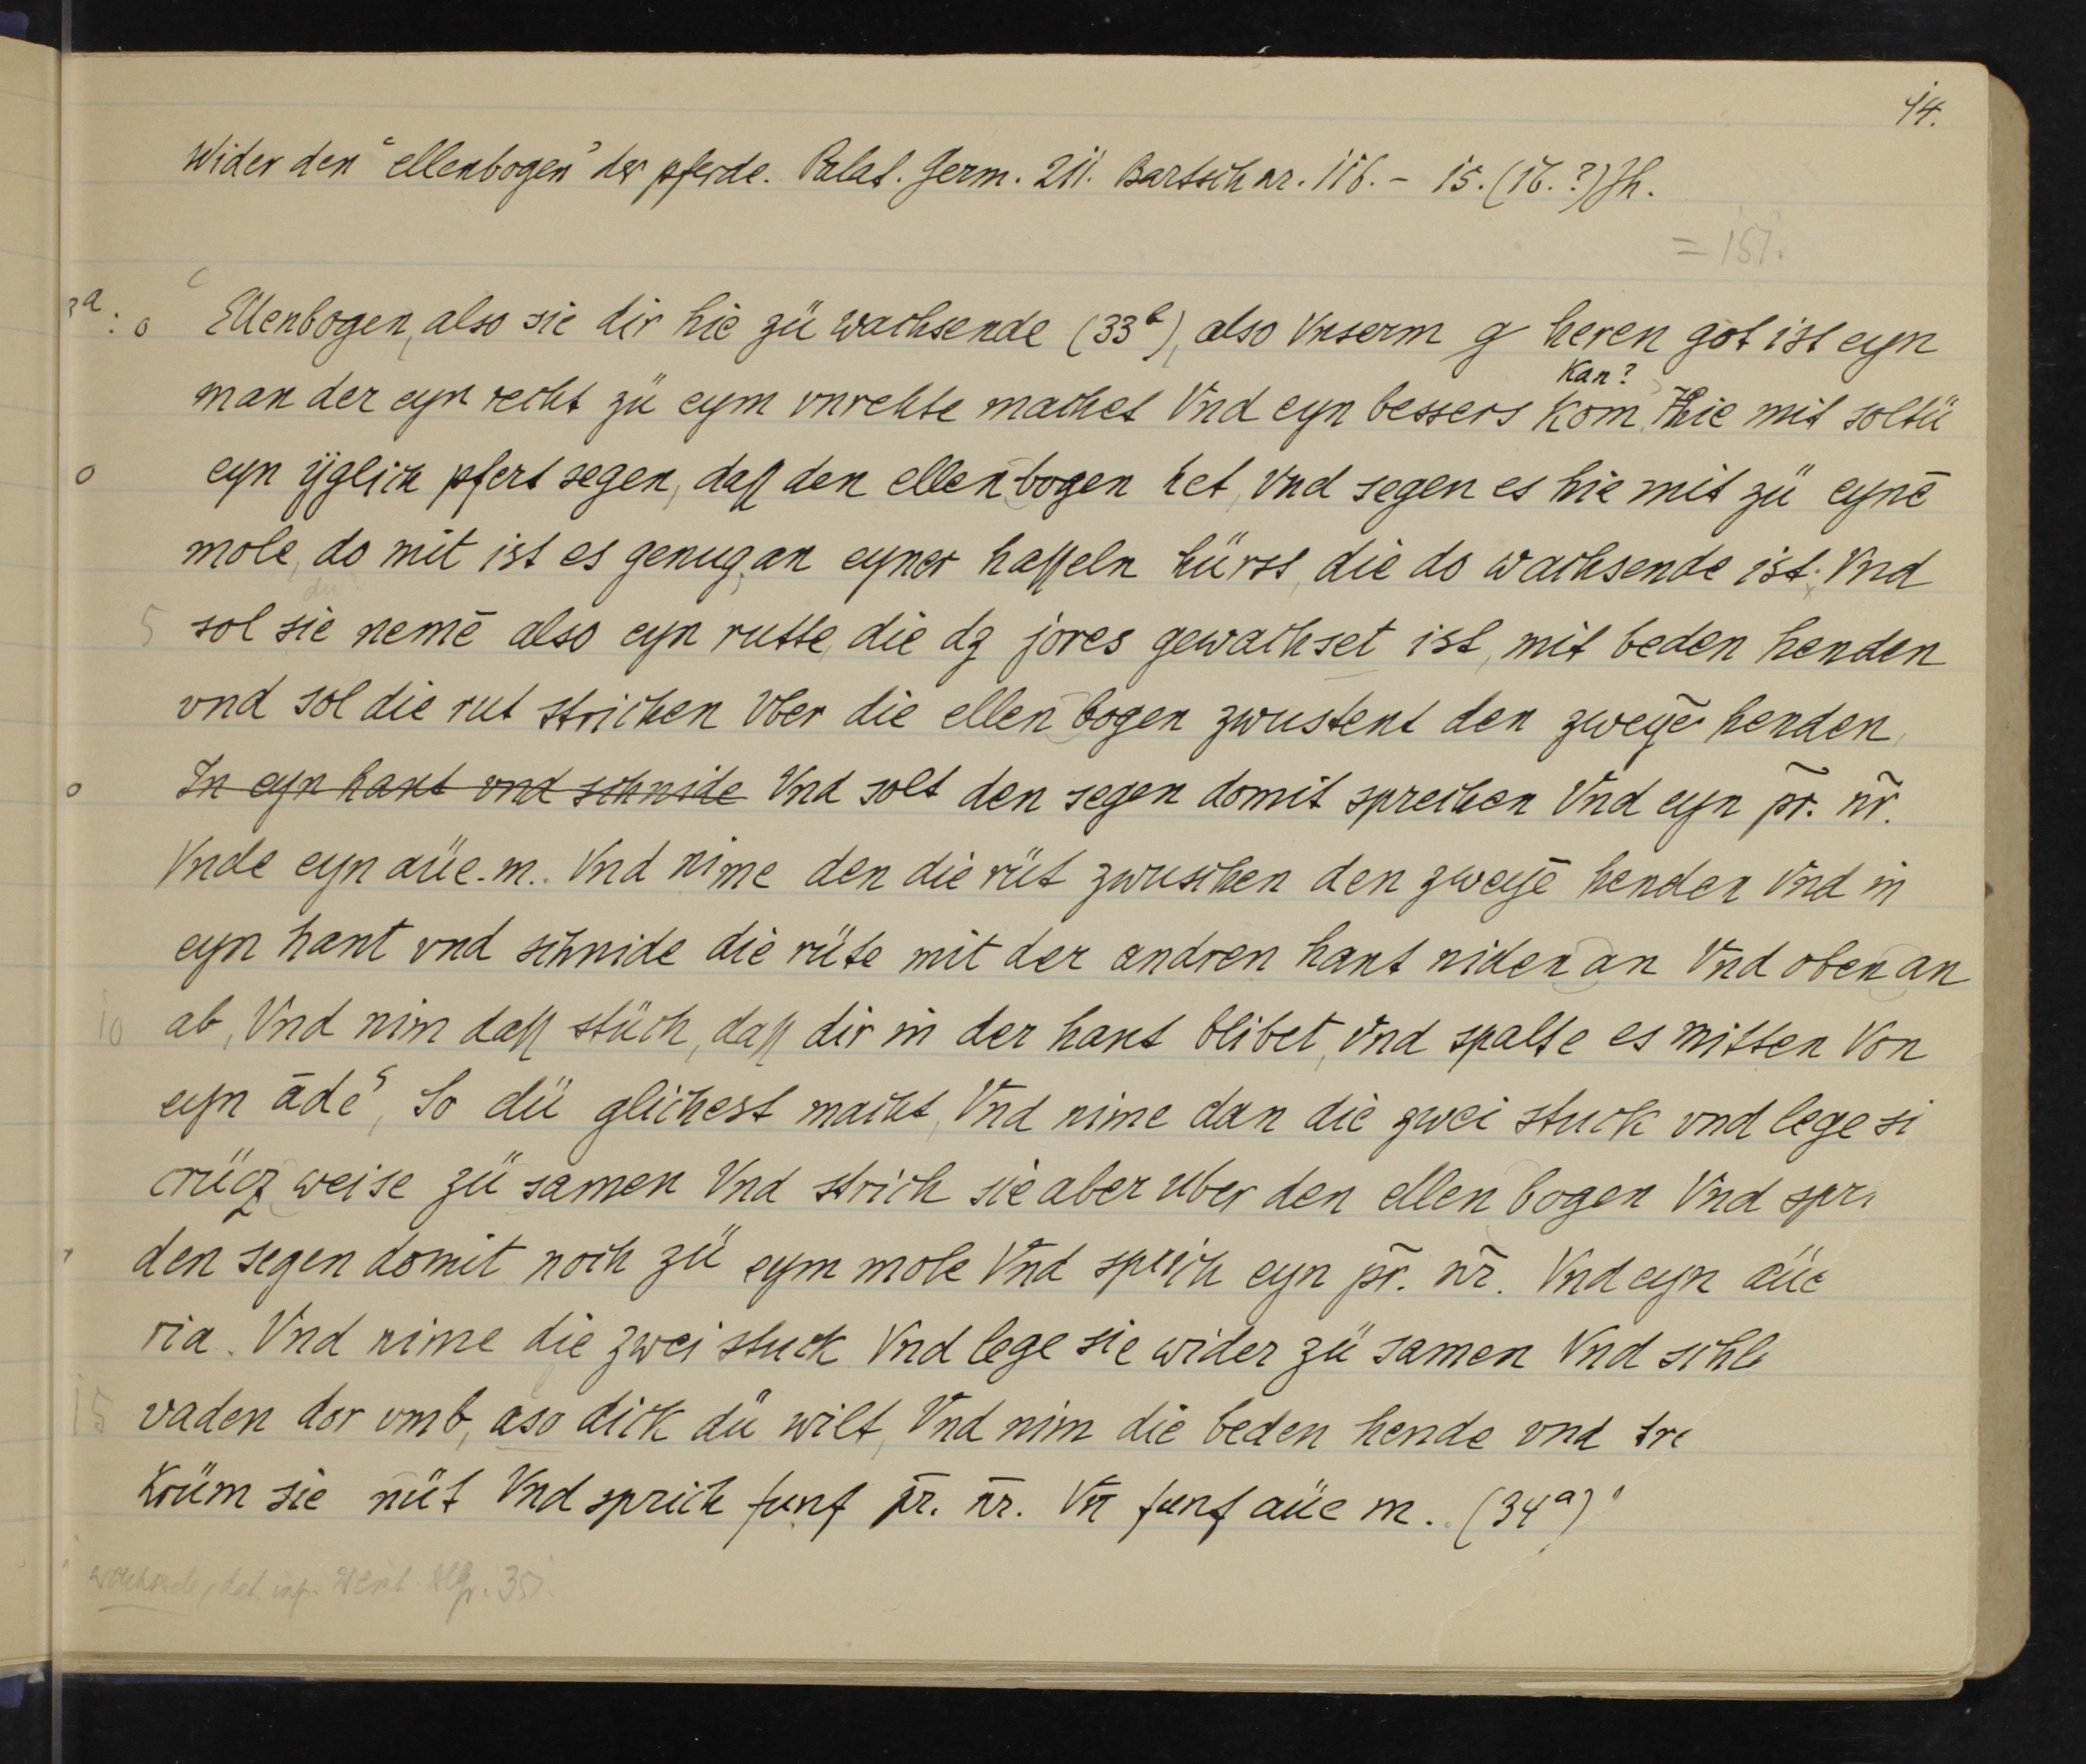 14.
Wider den "ellenbogen" der pferde. Palat. Germ. 211. Bartsch nr. 116. - 15. (16.?) Jh.
= 151.
3ª: o Ellenbogen, also sie dir hie zü wachsende (33ᵇ), also Vnserm g heren got ist eyn
Kan?
man der eyn recht zü eym vnrehte machet Vnd eyn bessers Kom. Hie mit soltü
o eyn ÿglich pfert segen, daß den ellenbogen het, vnd segen es hie mit zü eynē
mole, do mit ist es genug, an eyner hasseln hürst, die do wachsende ist. Vnd
du?
5 sol sie nemē also eyn rutte, die dz jores gewachset ist, mit beden henden
vnd sol die rut strichen Vber die ellenbogen zwustent den zweyē henden,
o In eyn hant vnd schnide Vnd solt den segen domit sprechen Vnd eyn pr̄. nr̄.
Vnde eyn aüe. m.. Vnd nime den die rüt zwuschen den zweyē henden Vnd in
eyn hant vnd schnide die rüte mit der andren hant niden an Vnd oben an
10 ab, Vnd nim daß stüch, daß dir in der hant blibet, vnd spalte es mitten Von
eyn ādeʾ, So dü glichest macht, Vnd nime dan die zwei stuck vnd lege si
crücz weise zü samen Vnd strich sie aber uber den ellenbogen Vnd spr
den segen domit noch zü eym mole Vnd sprich eyn pr̄. nr̄. Vnd eyn aüe
ria. Vnd nime die zwei stuck Vnd lege sie wider zü samen Vnd schl
15 vaden dor vmb, aso dick dü wilt, Vnd nim die beden hende vnd tre
Krüm sie nüt Vnd sprich funf pr̄. nr̄. Vn̄ funf aüe m.. (34ª)
dat. inf. 351.